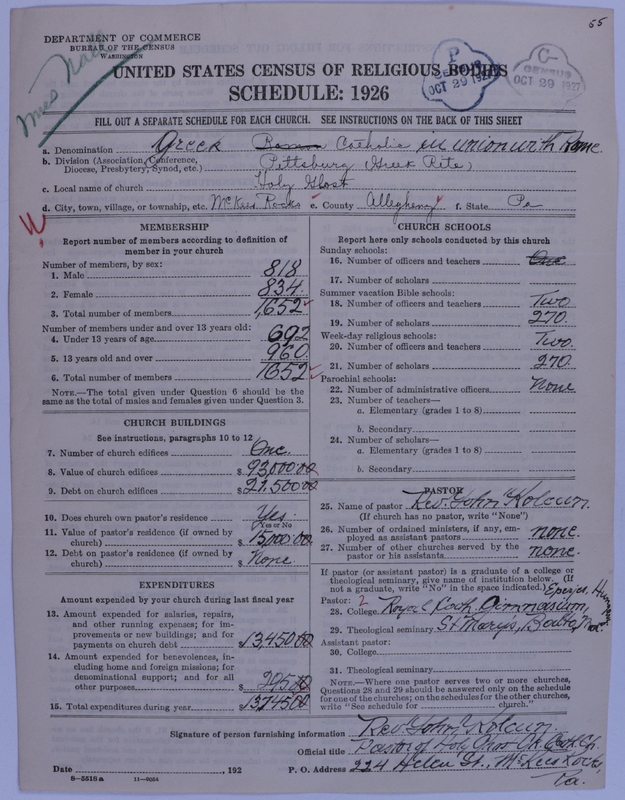 55
DEPARTMENT OF COMMERCE
BUREAU OF THE CENSUS
WASHINGTON
P CENSUS OCT 29 1927
C- CENSUS OCT 29 1927
UNITED STATES CENSUS OF RELIGIOUS BODIES
SCHEDULE: 1926
FILL OUT A SEPARATE SCHEDULE FOR EACH CHURCH. SEE INSTRUCTIONS ON THE BACK OF THIS SHEET
a. Denomination Greek Catholic in union with Rome
b. Division (Association, Conference, Diocese, Presbytery, Synod, etc.) Pittsburg (Greek Rite)
c. Local name of church Holy Ghost
d. City, town, village, or township, etc. McKees Rocks e. County Allegheny f. State Pa
MEMBERSHIP
Report number of members according to definition of
member in your church
Number of members, by sex:
1. Male 818
2. Female 834
3. Total number of members 1,652
Number of members under and over 13 years old:
4. Under 13 years of age 692
5. 13 years old and over 960
6. Total number of members 1652
NOTE.—The total given under Question 6 should be
same as the total of males and females given under Question 3.
CHURCH BUILDINGS
See instructions, paragraphs 10 to 12
7. Number of church edifices One
8. Value of church edifices $ 93,000.00
9. Debt on church edifices $ 21,500.00
10. Does church own pastor's residence Yes.
Yes or No
11. Value of pastor's residence (if owned by
church) $ 15,000.00
12. Debt on pastor's residence (if owned by
church) $ None
EXPENDITURES
Amount expended by your church during last fiscal year
13. Amount expended for salaries, repairs,
and other running expenses; for im-
provements or new buildings; and for
payments on church debt $ 13,450.00
14. Amount expended for benevolences, in-
cluding home and foreign missions; for
denominational support; and for all
other purposes 295.00
15. Total expenditures during year $ 13,745.00
CHURCH SCHOOLS
Report here only schools conducted by this church
Sunday schools:
16. Number of officers and teachers One
17. Number of scholars
Summer vacation Bible schools:
18. Number of officers and teachers Two
19. Number of scholars 270.
Week-day religious schools:
20. Number of officers and teachers Two.
21. Number of scholars 270.
Parochial schools:
22. Number of administrative officers None
23. Number of teachers—
a. Elementary (grades 1 to 8)
b. Secondary
24. Number of scholars—
a. Elementary (grades 1 to 8)
b. Secondary
PASTOR
25. Name of pastor Rev. John Kolcun.
(If church has no pastor, write "None")
26. Number of ordained ministers, if any, em-
ployed as assistant pastors none.
27. Number of other churches served by the
pastor or his assistants none.
If pastor (or assistant pastor) is a graduate of a college or
theological seminary, give name of institution below. (If
not a graduate, write "No" in the space indicated.)
Pastor: 2
28. College Royal Cath. Gimnasium,
29. Theological seminary St Marys, Balto, Md.
Assistant pastor:
30. College
31. Theological seminary
NOTE.—Where one pastor serves two or more churches,
Questions 28 and 29 should be answered only on the schedule
for one of the churches; on the schedules for the other churches,
write "See schedule for church."
Signature of person furnishing information Rev. John Kolcun.
Official title Pastor of Holy Ghost Gr. Cath. Ch.
Date , 192 P. O. Address 224 Helen St., McKees Rocks,
Pa.
8-5518a 11-9054